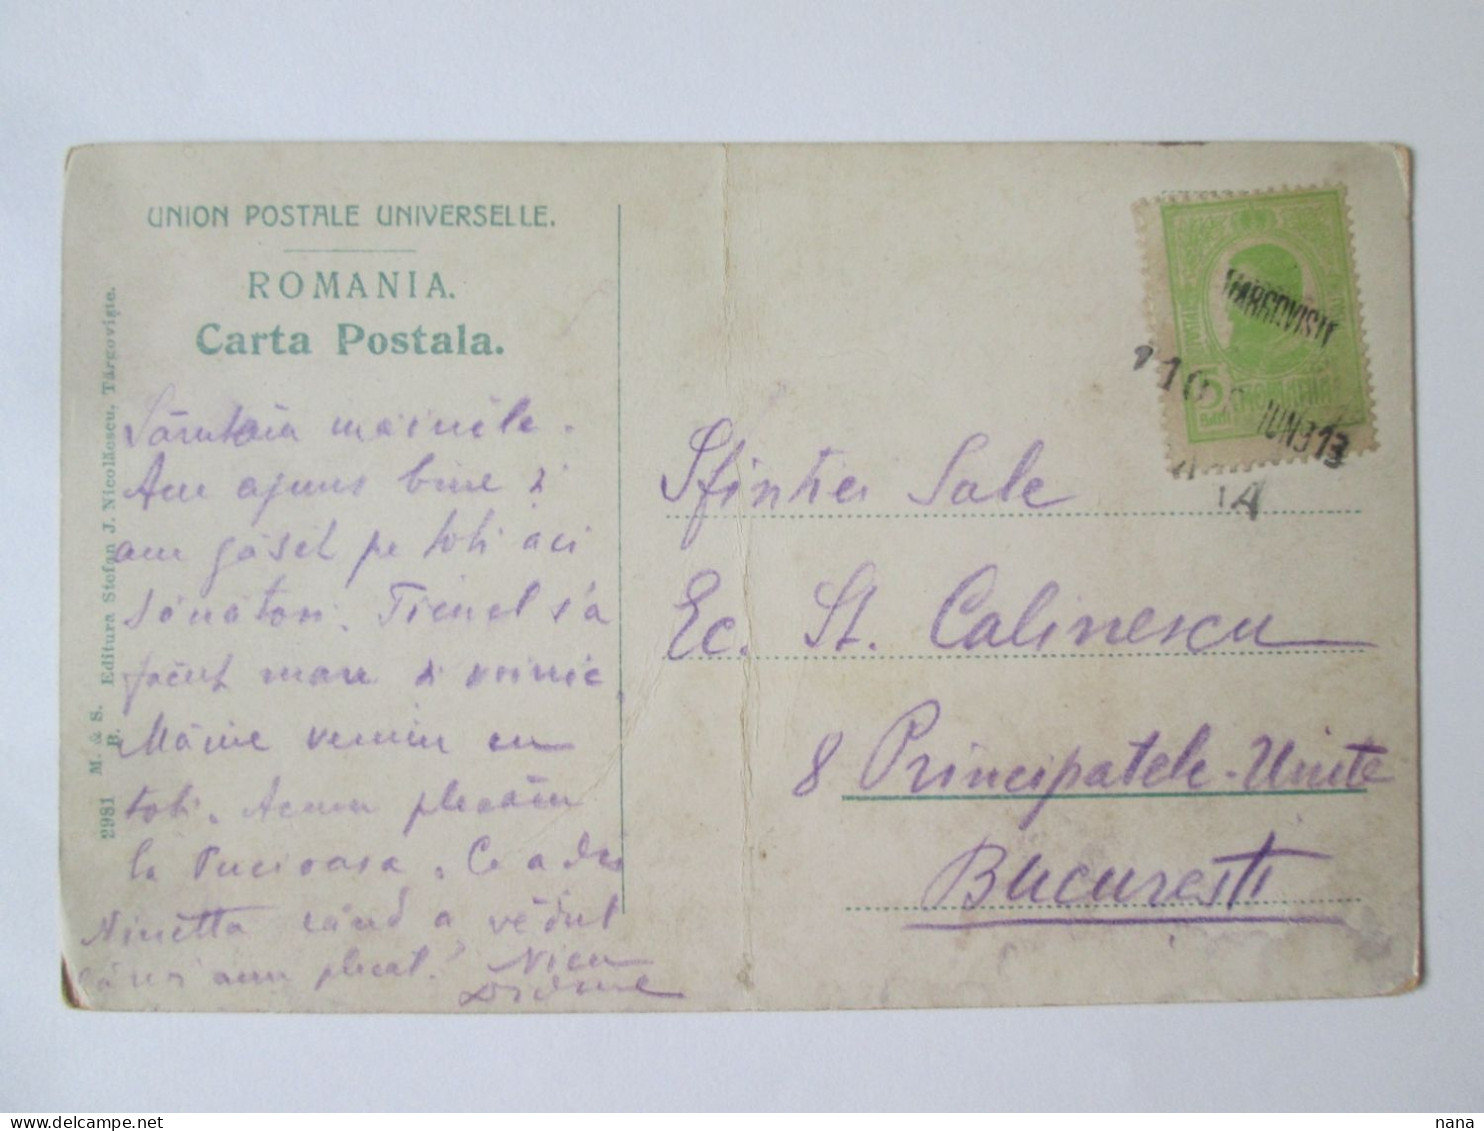 UNION POSTALE UNIVERSELLE.
ROMANIA.
Carta Postala.
2981 M. & S. B. Editura Stefan J. Nicolăescu, Târgoviște.
Sărutăm mâinile.
Am ajuns bine și
am găsit pe toti aci
sănătoși. Ticnel s'a
făcut mare și voinic.
Mâine venim cu
toti. Acum plecăm
la Pucioasa. Ce a zis
Ninetta când a vĕdut
că noi am plecat?
Nicu
TARGOVISTE
IUN913
5
BANI
Sfintiei Sale
Ec. St. Calinescu
8 Principatele-Unite
Bucuresti
nana